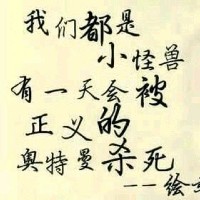 我们都是
小怪兽
有一天会被
正义的
奥特曼杀死
——绘